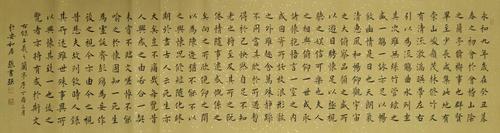 永和九年歲在癸丑暮
春之初會于會稽山陰
之蘭亭脩禊事也群賢
畢至少長咸集此地有
崇山峻領茂林脩竹又
有清流激湍映帶左右
引以為流觴曲水列坐
其次雖無絲竹管弦之
盛一觴一詠亦足以暢
敘幽情是日也天朗氣
清惠風和暢仰觀宇宙
之大俯察品類之盛所
以遊目騁懷足以極視
聽之娛信可樂也夫人
之相與俯仰一世或取
諸懷抱悟言一室之內
或因寄所託放浪形骸
之外雖趣舍萬殊靜躁
不同當其欣於所遇暫
得於己快然自足不知
老之將至及其所之既
惓情隨事遷感慨係之
矣向之所欣俛仰之間
已為陳迹猶不能不以
之興懷況脩短隨化終
期於盡古人云死生亦
大矣豈不痛哉每覽昔
人興感之由若合一契
未嘗不臨文嗟悼不能
喻之於懷固知一死生
為虛誕齊彭殤為妄作
後之視今亦由今之視
昔悲夫故列敘時人錄
其所述雖世殊事異所
以興懷其致一也後之
覽者亦將有感於斯文
右錄王羲之蘭亭序